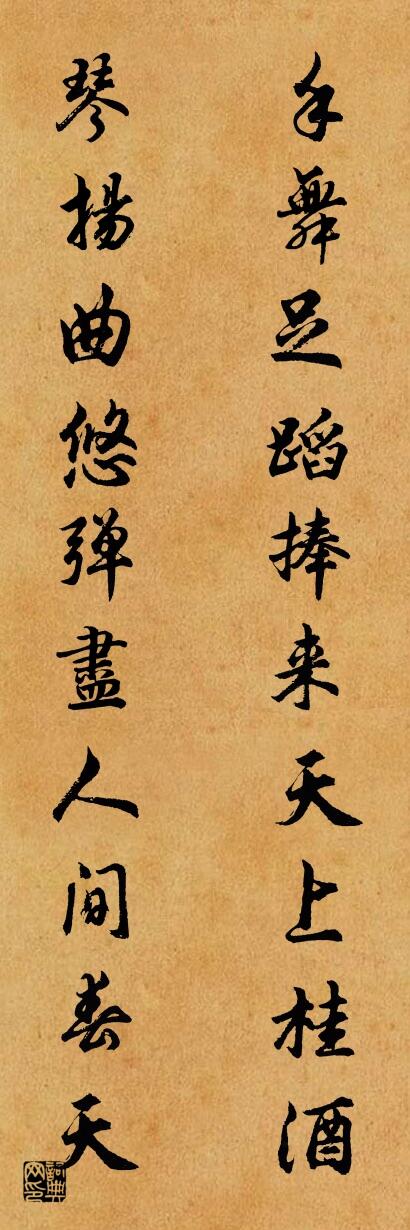 手舞足蹈捧来天上桂酒
琴揚曲悠弹盡人间春天
詞典网印